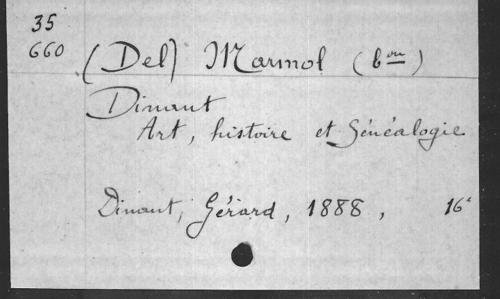 35
660
(Del) Marmol (bon)
Dinant
Art, histoire et Généalogie
Dinant, Gérard, 1888, 16°